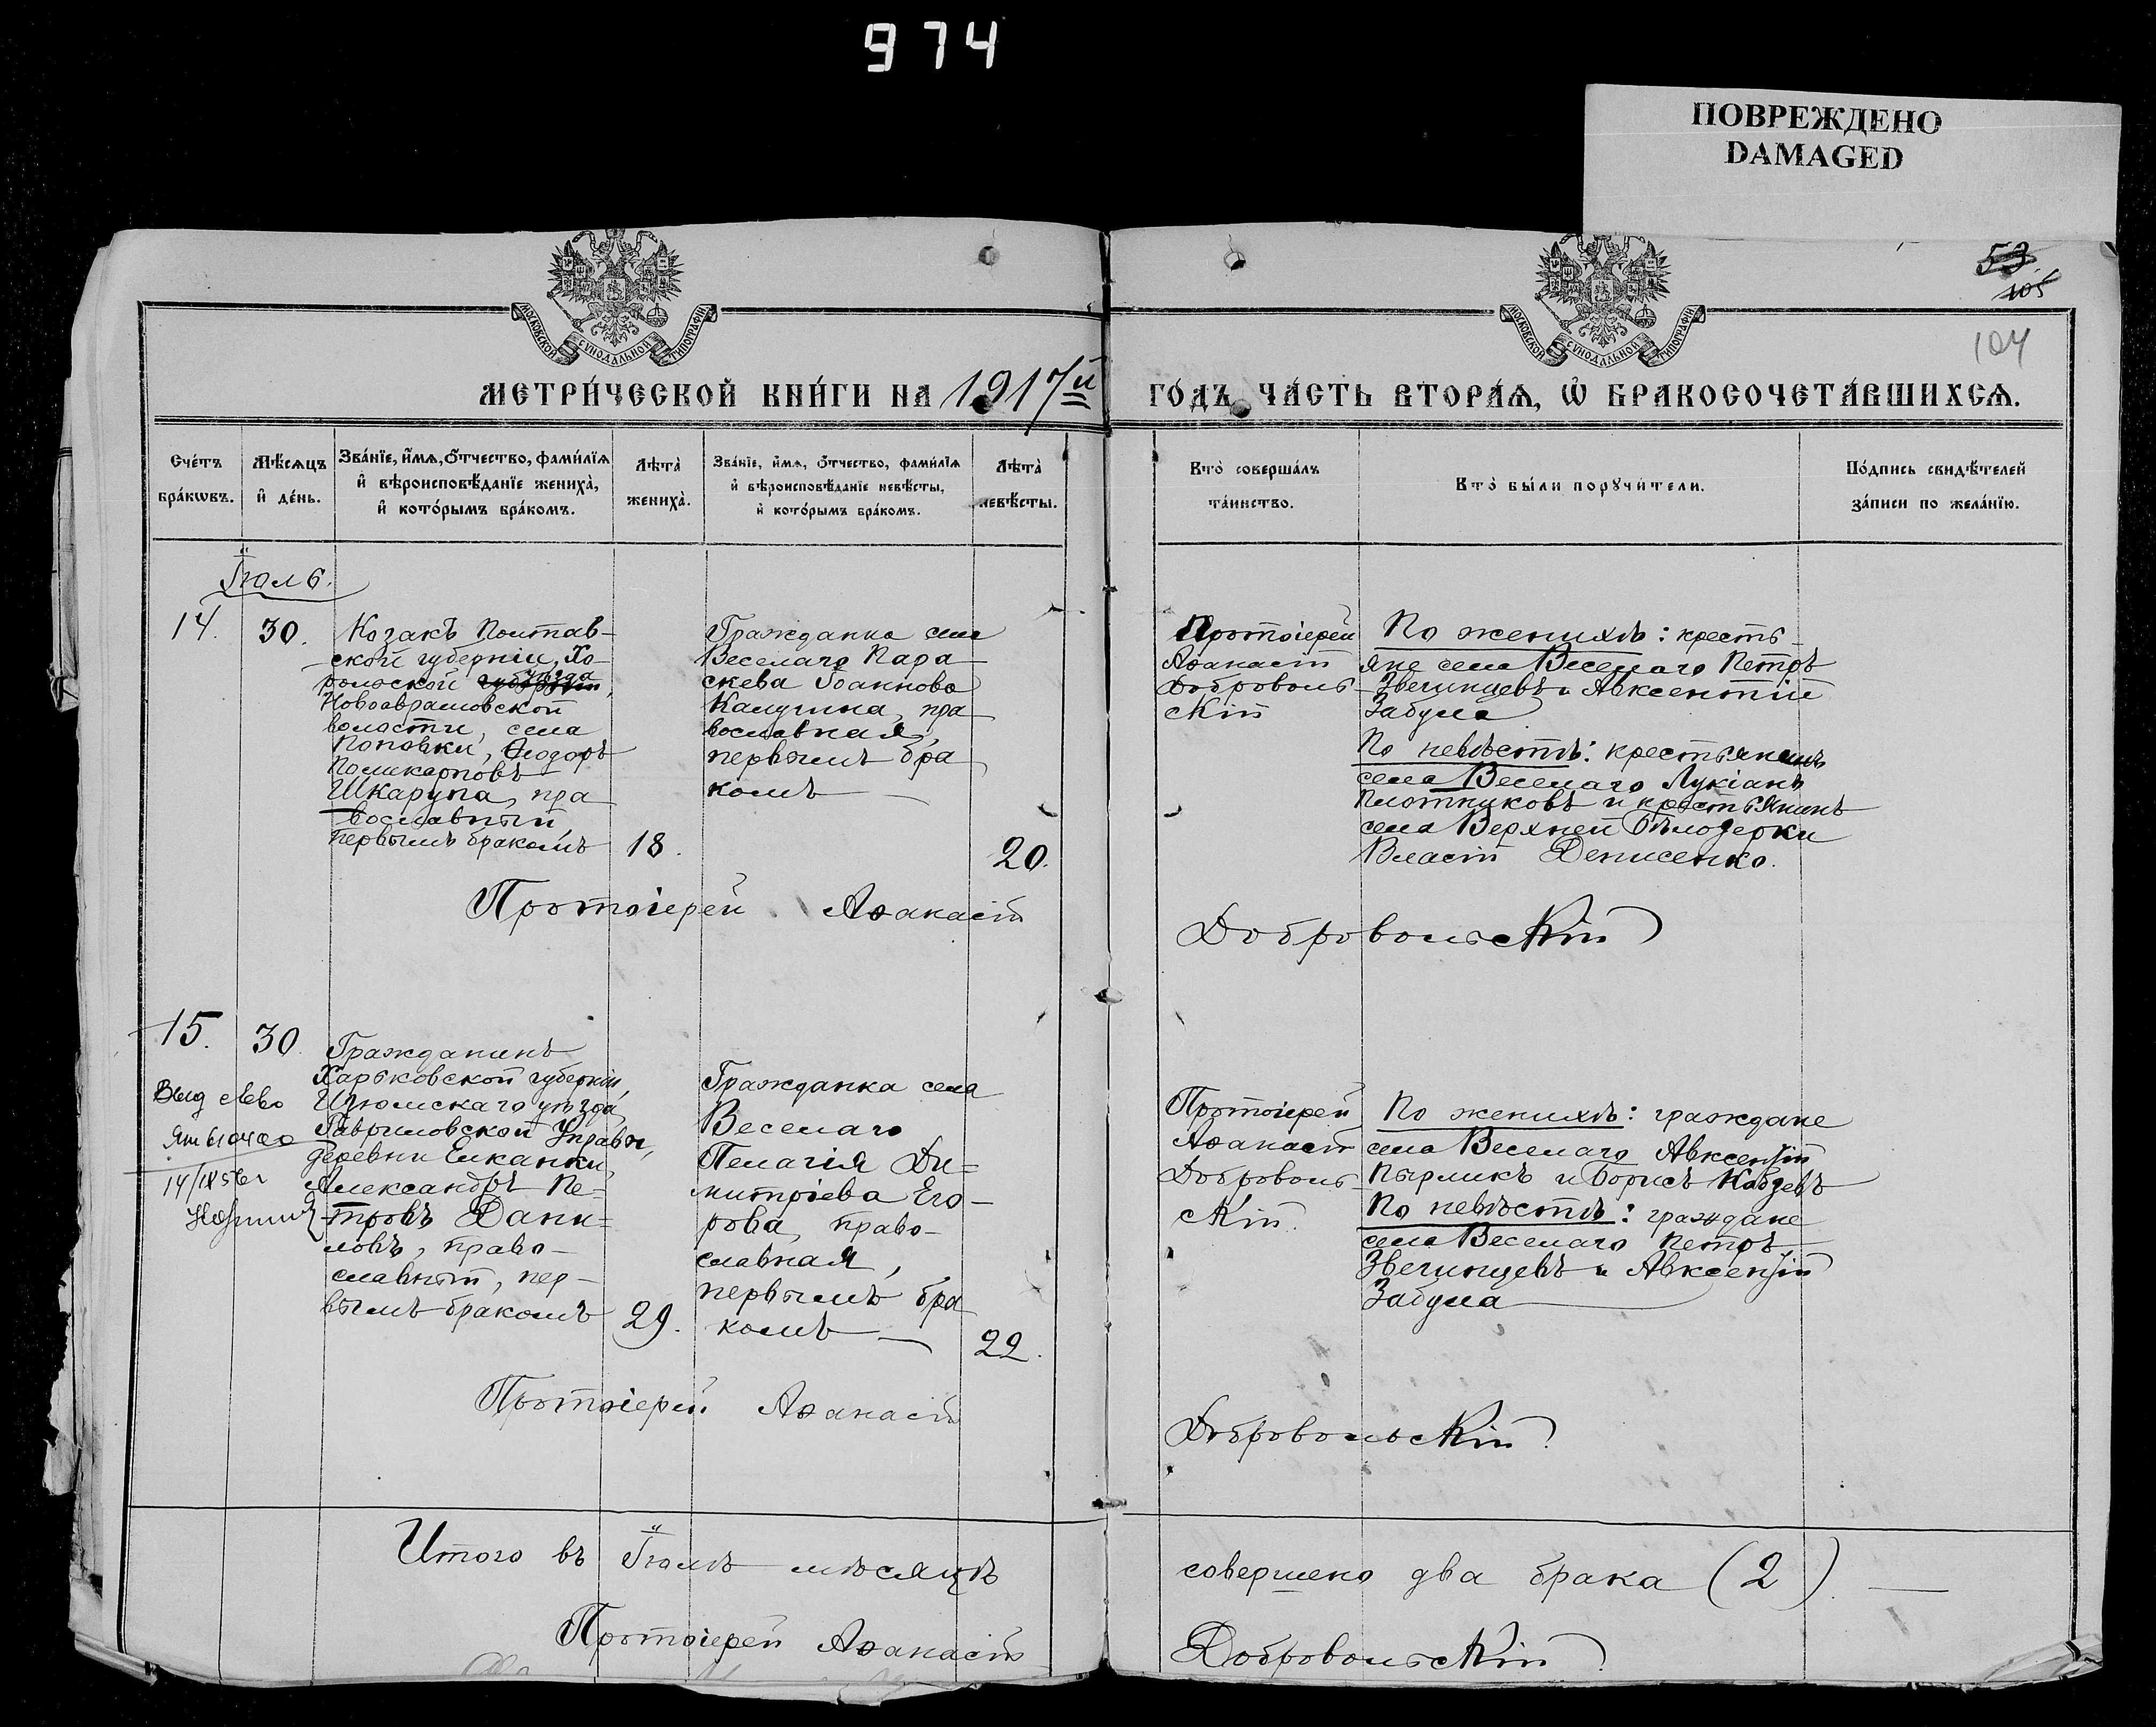 974
ПОВРЕЖДЕНО
DAMAGED
53.
105
104
МОСКОВСКОЙ СУНОДАЛЬНОЙ ТИПОГРАФІИ
МОСКОВСКОЙ СУНОДАЛЬНОЙ ТИПОГРАФІИ
МЕТРИ́ЧЕСКОЙ КНИ́ГИ НА 1917й
ГО́ДЪ, ЧА́СТЬ ВТОРА́Ѧ, Ѽ БРАКОСОЧЕТА́ВШИХСѦ.
Сче́тъ
бра́кѡвъ.
Мѣ́сѧцъ
и҆ де́нь.
Зва́нїе, и҆́мѧ, ѻ҆́тчество, фами́лїѧ
и҆ вѣроисповѣ́данїе жениха̀,
и҆ кото́рымъ бра́комъ.
Лѣта̀
жениха̀.
Зва́нїе, и҆́мѧ, ѻ҆́тчество, фами́лїѧ
и҆ вѣроисповѣ́данїе невѣ́сты,
и҆ кото́рымъ бра́комъ.
Лѣта̀
невѣ́сты.
Кто̀ соверша́лъ
та́инство.
Кто̀ бы́ли порꙋчи́тели.
По́дпись свидѣ́телей
за́писи по жела́нїю.
Іюль.
14.
30.
Козакъ Полтав-
ской губерніи, Хо-
рольской губерніи уѣзда,
Новоаврамовской
волости, села
Поповки, Ѳеодоръ
Поликарповъ
Шкарупа, пра
вославный
первымъ бракомъ
18.
Гражданка села
Веселаго Пара
скева Іоаннова
Калугина, пра
вославная,
первымъ бра
комъ —
20.
Протоіерей
Аѳанасій
Доброволь-
скій
По женихѣ: кресть-
яне села Веселаго Петръ
Звегинцевъ и Авксентій
Забула
По невѣстѣ: крестьянинъ
села Веселаго Лукіанъ
Плотниковъ и крестьянинъ
села Верхней Бѣлозерки
Власій Денисенко.
Протоіерей Аѳанасій
Добровольскій
15.
30.
Выд
14/IX 56г
Гражданинъ
Харьковской губерніи,
Изюмскаго уѣзда,
Гавриловской Управы,
деревни Елканки,
Александръ Пе=
тровъ Дани=
ловъ, право-
славный, пер-
вымъ бракомъ
29.
Гражданка села
Веселаго
Пелагія Ди=
митріева Его-
рова, право-
славная,
первымъ бра
комъ —
22.
Протоіерей
Аѳанасій
Доброволь-
скій.
По женихѣ: граждане
села Веселаго Авксентій
Пырликъ и Борисъ
По невѣстѣ: граждане
села Веселаго Петръ
Звегинцевъ и Авксентій
Забула
Протоіерей Аѳанасій
Добровольскій.
Итого въ Іюлѣ мѣсяцѣ
совершено два брака (2). —
Протоіерей Аѳанасій
Добровольскій.